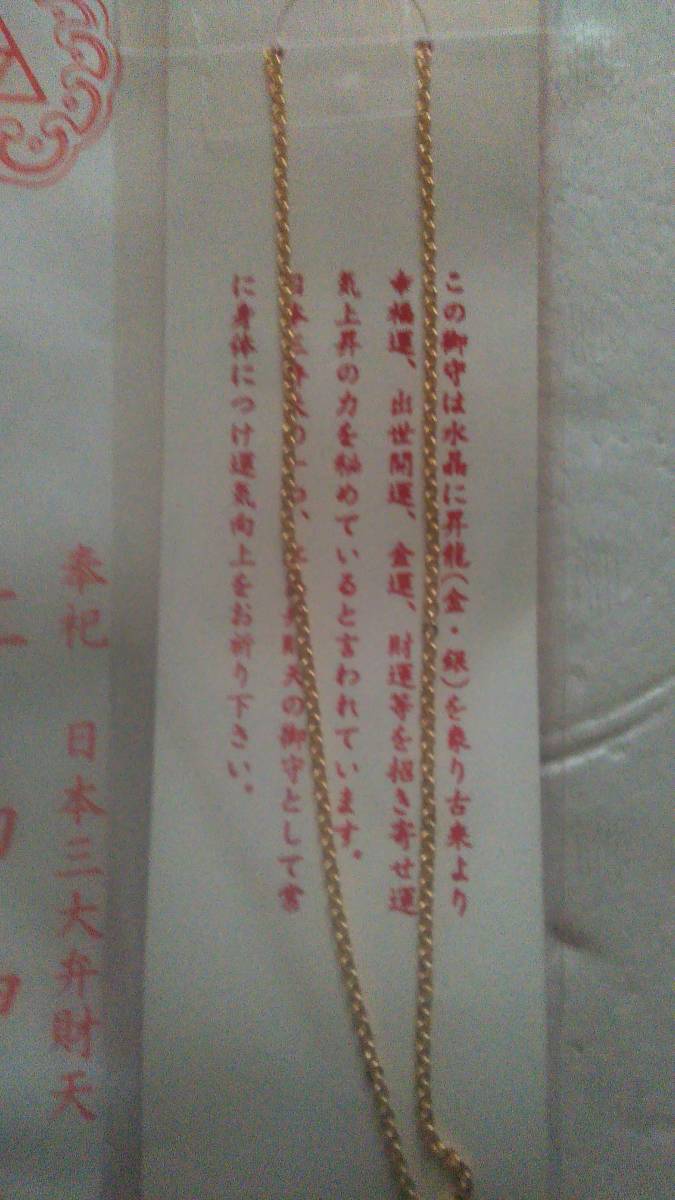 この御守は水晶に昇龍(金・銀)を象り古来より
幸福運、出世開運、金運、財運等を招き寄せ運
気上昇の力を秘めていると言われています。
日本三 の一つ、 財天の御守として常
に身体につけ運気向上をお祈り下さい。
奉祀 日本三大弁財天